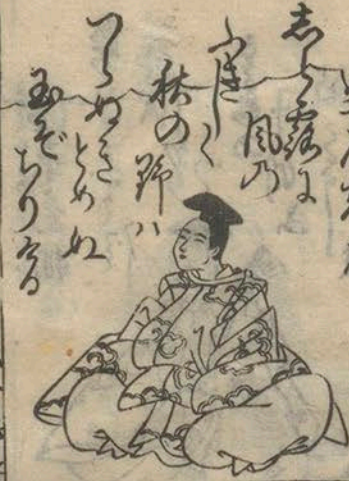 志ら露に
風の
ふきしく
秋の野は
つらぬきとめぬ
玉ぞちりける